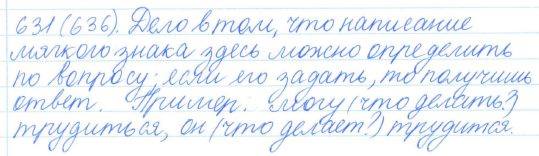 631(636). Дело в том, что написание
мягкого знака здесь можно определить
по вопросу; если его задать, то получишь
ответ. Пример. Могу (что делать?)
трудиться, он (что делает?) трудится.